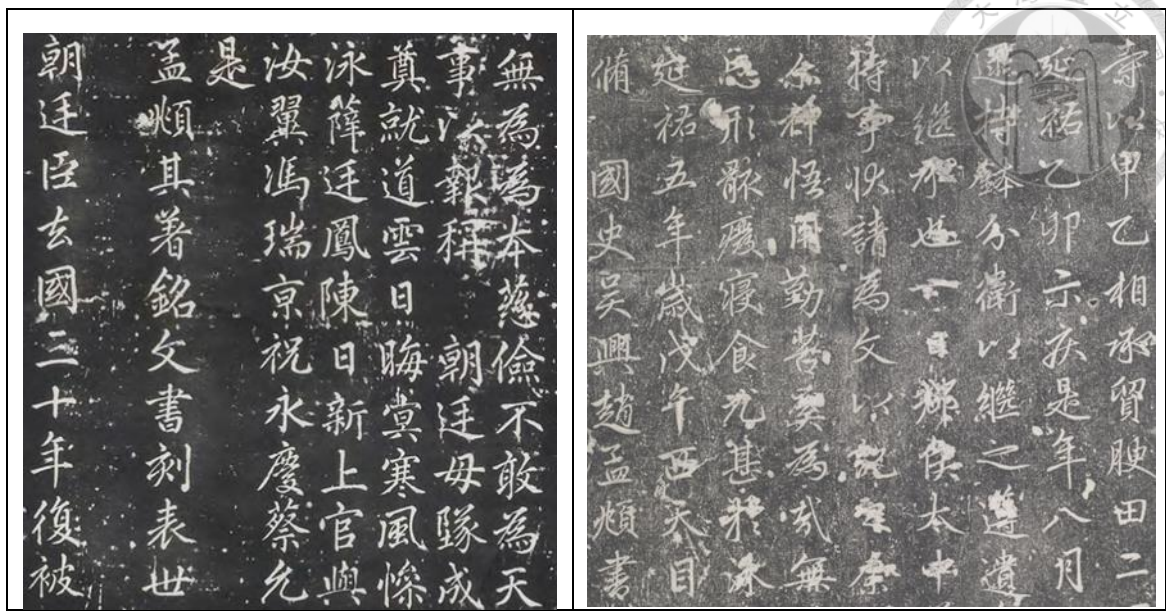 無為為本慈儉不敢為天
事以報稱 朝廷毋墜成
奠就道雲日晦冥寒風慘
泳薛廷鳳陳日新上官與
汝翼馮瑞京祝永慶蔡允
是
孟頫其著銘文書刻表世
朝廷臣去國二十年復被
寺以甲乙相承貿腴田二
延祐乙卯示疾是年八月
持鉢分衛以繼之遵遺
以繼承也一日侯太中
持事狀請為文以記
悟用勤苦奚為哉無
忘形骸廢寢食尤甚於
延祐五年歲戊午西天目
脩 國史吳興趙孟頫書